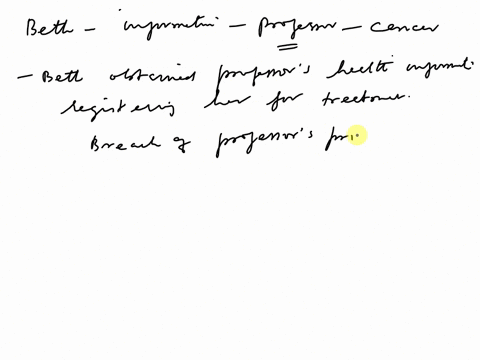 Beth - information - Professor - cancer
- Beth obtained professor's health informati
registering her for treatment.
Breach of professor's pri